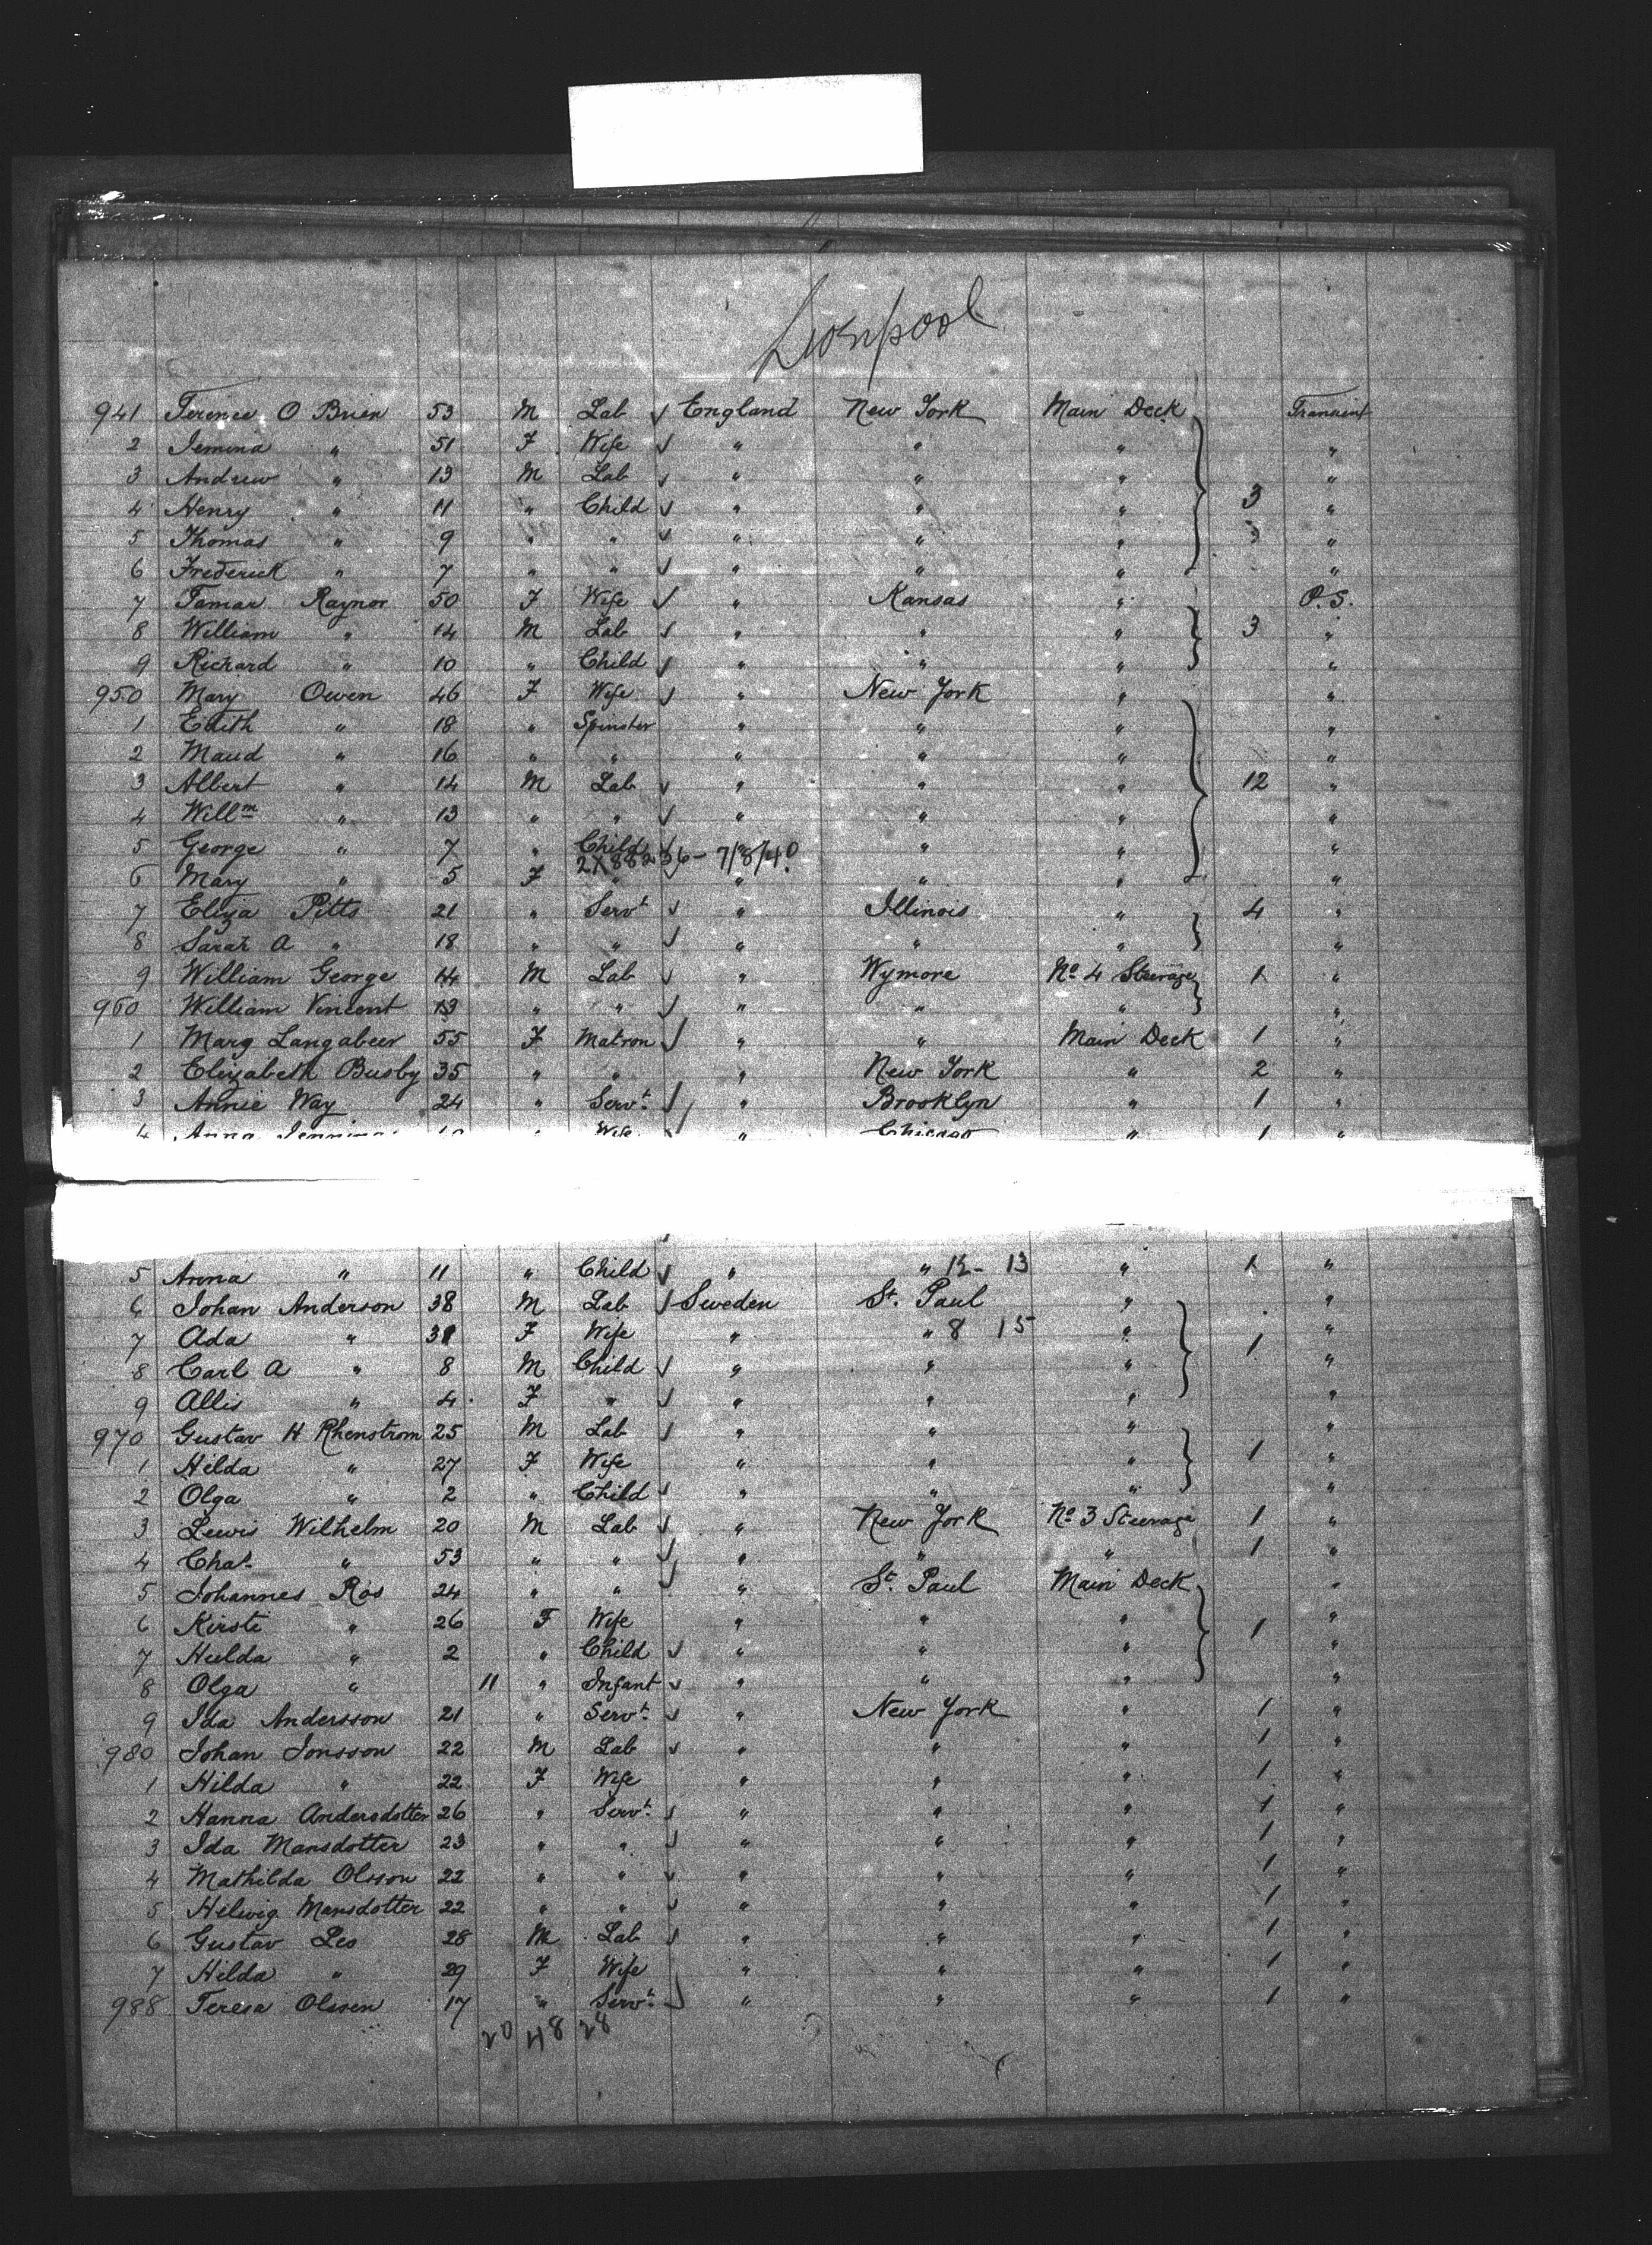 Liverpool
941 Terence O Brien 53 M Lab England New York Main Deck Transient
2 Jemima " 51 F Wife " " " "
3 Andrew " 13 M Lab " " " "
4 Henry " 11 " Child " " " 3 "
5 Thomas " 9 " " " " " "
6 Frederick " 7 " " " " " "
7 Tamar Raynor 50 F Wife " Kansas " P.S.
8 William " 14 M Lab " " " 3 "
9 Richard " 10 " Child " " " "
950 Mary Owen 46 F Wife " New York " "
1 Edith " 18 " Spinster " " " "
2 Maud " 16 " " " " " "
3 Albert " 14 M Lab " " " 12 "
4 Willm " 13 " " " " " "
5 George " 7 " Child " " " "
7/8/40
6 Mary " 5 F " " " " "
7 Eliza Pitts 21 " Servt " Illinois " 4 "
8 Sarah A " 18 " " " " " "
9 William George 14 M Lab " Wymore No 4 Steerage 1 "
960 William Vincent 13 " " " " " "
1 Marg Langabeer 55 F Matron " " Main Deck 1 "
2 Elizabeth Busby 35 " " " New York " 2 "
3 Annie Way 24 " Servt. " Brooklyn " 1 "
4 Anna " Wife " Chicago " 1 "
5 Anna " 11 " Child " " 12 - 13 " 1 "
6 Johan Anderson 38 M Lab Sweden St. Paul " "
7 Ada " 31 F Wife " " 8 15 " 1 "
8 Carl A " 8 M Child " " " "
9 Allis " 4 F " " " " "
970 Gustav H Rhenstrom 25 M Lab " " " "
1 Hilda " 27 F Wife " " " 1 "
2 Olga " 2 " Child " " " "
3 Lewis Wilhelm 20 M Lab " New York No 3 Steerage 1 "
4 Chas " 53 " " " " " 1 "
5 Johannes Ros 24 " " " St. Paul Main Deck "
6 Kirsti " 26 F Wife " " " 1 "
7 Hulda " 2 " Child " " " "
8 Olga " 11 " Infant " " " "
9 Ida Andersson 21 " Servt. " New York " 1 "
980 Johan Jonsson 22 M Lab " " " 1 "
1 Hilda " 22 F Wife " " " 1 "
2 Hanna Andersdotter 26 " Servt. " " " 1 "
3 Ida Mansdotter 23 " " " " " 1 "
4 Mathilda Olsson 22 " " " " " 1 "
5 Hilwig Mansdotter 22 " " " " " 1 "
6 Gustav Les 28 M Lab " " " 1 "
7 Hilda " 29 F Wife " " " 1 "
988 Teresa Olssen 17 " Servt. " " " 1 "
20 48 28